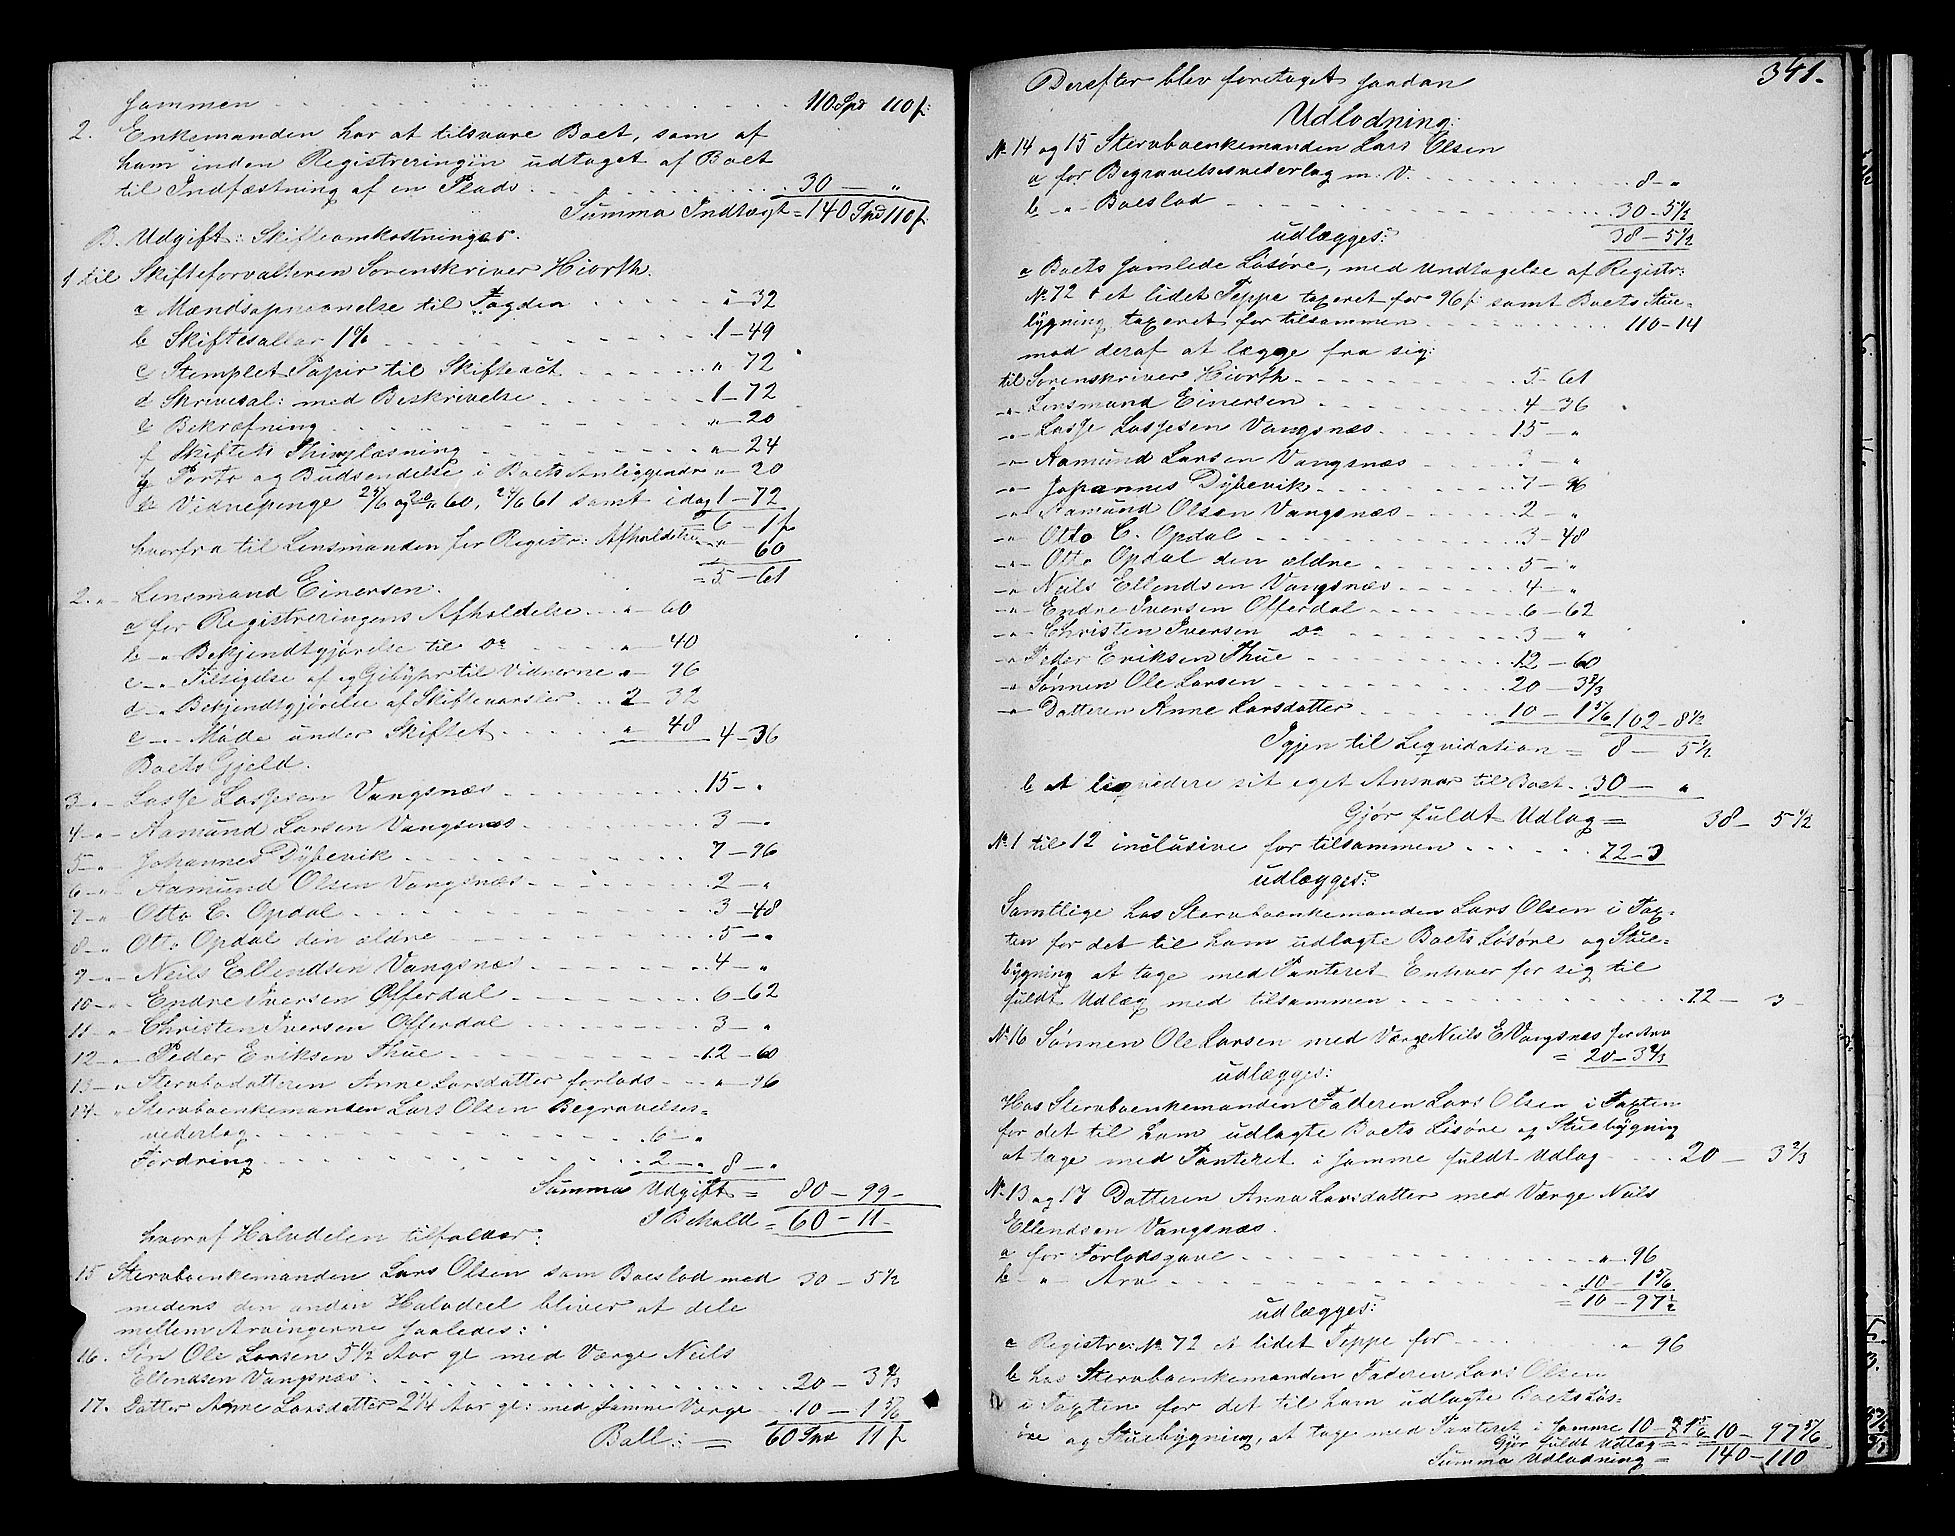 Sammen . . . 110 Spd 110 ſ:
2. Enkemanden har at tilsvare Boet, som af
ham inden Registreringen udtaget af Boet
til Indfæstning af en Plads . . . 30 — "
Summa Indtægt = 140 Spd 110 ſ.
B. Udgift: Skifteomkostninger.
1 til Skifteforvalteren Sorenskriver Hiorth.
a Mændsopnævnelse til Fogden . . . " — 32
b Skiftesallar 1% . . . 1 — 49
c Stemplet Papir til Skifteact . . . " 72
d Skrivesal: med Beskrivelse . . . 1 — 72
e Bekræfning . . . " — 20
f Skiftets Thinglæsning . . . " — 24
g Porto og Budsendelse i Boets Anliggender " — 20
h Vidnepenge 25/6 og 60, 61 samt idag 1 — 72
6 — 1 ſ
hvorfra til Lensmanden for Registr: Afholdelse " 60
= 5 — 61
2. " Lensmand Einersen.
a for Registreringens Afholdelse . . " — 60
b - " Bekjendtgjørelse til Do . . . " 40
c - " Tilsigelse af og Gebyhr til Vidnerne " — 96
d - " Bekjendtgjørelse af Skiftevarsler . . 2 — 32
e - " Møde under Skiftet . . . " 48 4 — 36
Boets Gjeld.
3 - " - Lasse Lassesen Vangsnæs . . . 15 — "
4 - " - Aamund Larsen Vangsnæs . . . 3 — "
5 - " - Johannes Dybevik . . . 7 — 96
6 - " - Aamund Olsen Vangsnæs . . . 2 — "
7 - " - Otto C. Opdal . . . 3 — 48
8 - " - Otto Opdal den ældre . . . 5 — "
9 - " - Neils Ellendsen Vangsnæs . . . 4 — "
10 - " - Endre Iversen Offerdal . . . 6 — 62
11 - " - Christen Iversen Offerdal . . . 3 — "
12 - " - Peder Eriksen Thue . . . 12 — 60
13 - " Stervbodatteren Anne Larsdatter forlods . . " — 96
14 - " Stervboenkemanden Lars Olsen Begravelses=
vederlag . . . 6 — "
Fordring . . . 2 — " 8 — "
Summa Udgift = 80 — 99 —
I Behold = 60 — 11 —
hvoraf Halvdelen tilfalder:
15 Stervboenkemanden Lars Olsen som Boeslod med 30 — 5 1/2
medens den anden Halvdeel bliver at dele
mellem Arvingerne saaledes:
16. Søn Ole Larsen 5 1/2 Aar gl med Værge Neils
Ellendsen Vangsnæs . . . 20 — 3 2/3
17. Datter Anne Larsdatter 2 1/4 Aar gl: med samme Værge 10 — 1 5/6
Ball: = 60 Spd 11 ſ
341.
Derefter blev foretaget saadan
Udlodning:
No 14 og 15 Stervboenkemanden Lars Olsen
a for Begravelsesvederlag m: V. . . . 8 — "
b - " - Boeslod . . . 30 — 5 1/2
udlægges: 38 — 5 1/2
a Boets samlede Løsøre, med Undtagelse af Registr:
No 72 et lidet Teppe taxeret for 96 ſ: samt Boets Stue=
bygning taxeret for tilsammen . . . 110 — 14
mod deraf at lægge fra sig:
til Sorenskriver Hiorth . . . 5 — 61
- " - Lensmand Einersen . . . 4 — 36
- " - Lasse Lassesen Vangsnæs . . . 15 — "
- " - Aamund Larsen Vangsnæs . . . 3 — "
- " - Johannes Dybevik . . . 7 — 96
- " - Aamund Olsen Vangsnæs . . . 2 — "
- " - Otto C. Opdal . . . 3 — 48
- " - Otto Opdal den ældre . . . 5 — "
- " - Neils Ellendsen Vangsnæs . . . 4 — "
- " - Endre Iversen Offerdal . . . 6 — 62
- " - Christen Iversen Do . . . 3 — "
- " - Peder Eriksen Thue . . . 12 — 60
- " - Sønnen Ole Larsen . . . 20 — 3 2/3
- " - Datteren Anne Larsdatter . . . 10 — 1 5/6 102 — 8 1/2
Igjen til Liqvidation = 8 — 5 1/2
b at liqvidere sit eget Ansvar til Boet . . 30 — "
Gjør fuldt Udlæg = 38 — 5 1/2
No 1 til 12 inclusive for tilsammen . . . 72 — 3
udlægges:
Samtlige hos Stervboenkemanden Lars Olsen i Tax=
ten for det til ham udlagte Boets Løsøre og Stue=
bygning at tage med Panteret Enhver for sig til
fuldt Udlæg med tilsammen . . . 72 — 3 —
No 16 Sønnen Ole Larsen med Værge Neils E Vangsnæs for Arv
= 20 — 3 2/3
udlægges:
Hos Stervboenkemanden Faderen Lars Olsen i Taxten
for det til ham udlagte Boets Løsøre og Stuebygning
at tage med Panteret i samme fuldt Udlæg . . . 20 — 3 2/3
No 13 og 17 Datteren Anna Larsdatter med Værge Neils
Ellendsen Vangsnæs.
a for Forlodsgave . . . " 96
b - " - Arv . . . 10 — 1 5/6
= 10 — 97 1/2
udlægges:
a Registrer: No 72 et lidet Teppe for . . . " 96
b hos Stervboenkemanden Faderen Lars Olsen
i Taxten for det til ham udlagte Boets Løs=
øre og Stuebygning, at tage med Panteret i samme 10 — 1 5/6
Gjør fuldt Udlæg = 10 — 97 5/6
Summa Udlodning = 140 — 110